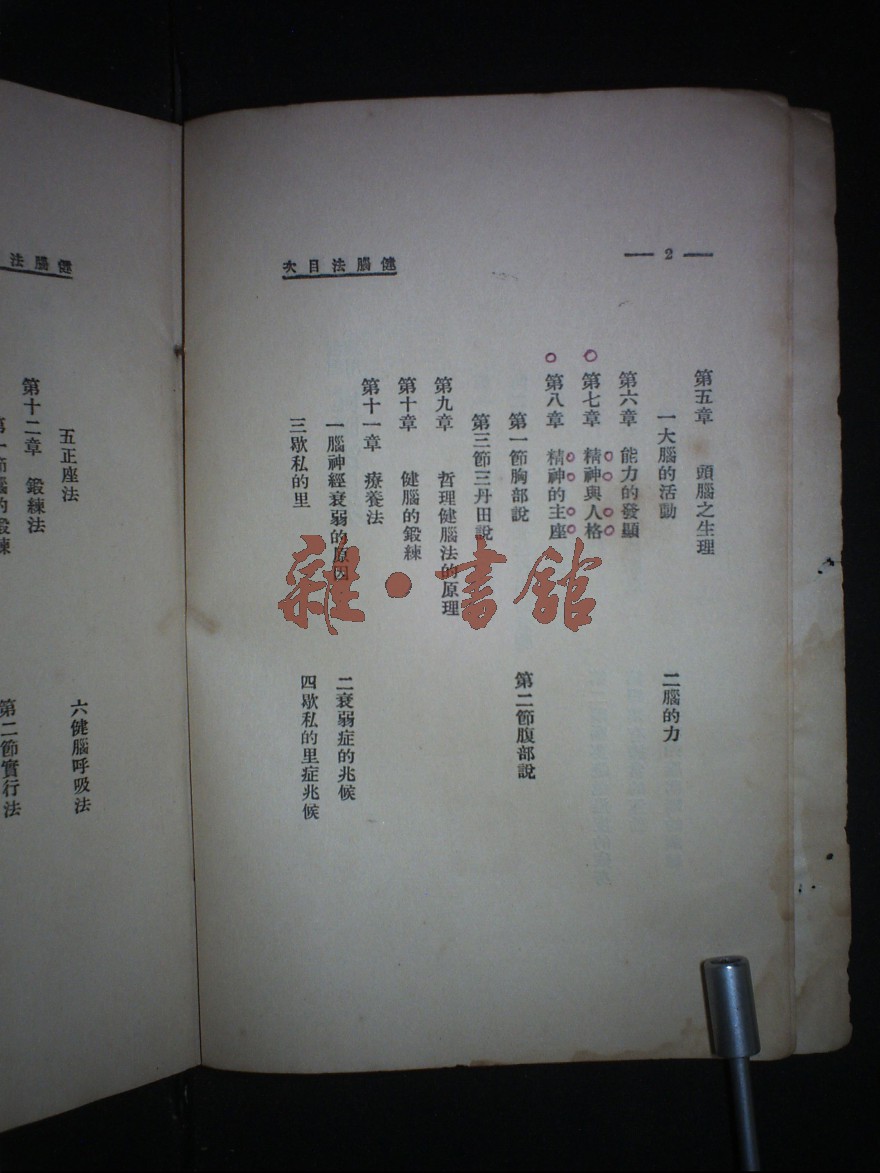 — 2 —
健腦法目次
第五章 頭腦之生理
一大腦的活動 二腦的力
第六章 能力的發顯
第七章 精神與人格
第八章 精神的主座
第一節胸部說 第二節腹部說
第三節三丹田說
第九章 哲理健腦法的原理
第十章 健腦的鍛練
第十一章 療養法
一腦神經衰弱的原因 二衰弱症的兆候
三歇私的里 四歇私的里症兆候
健腦法
五正座法 六健腦呼吸法
第十二章 鍛練法
第一節腦的鍛練 第二節實行法
雜·書館